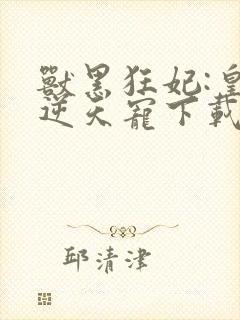 獸黑狂妃:皇
逆天寵下載
邱清津